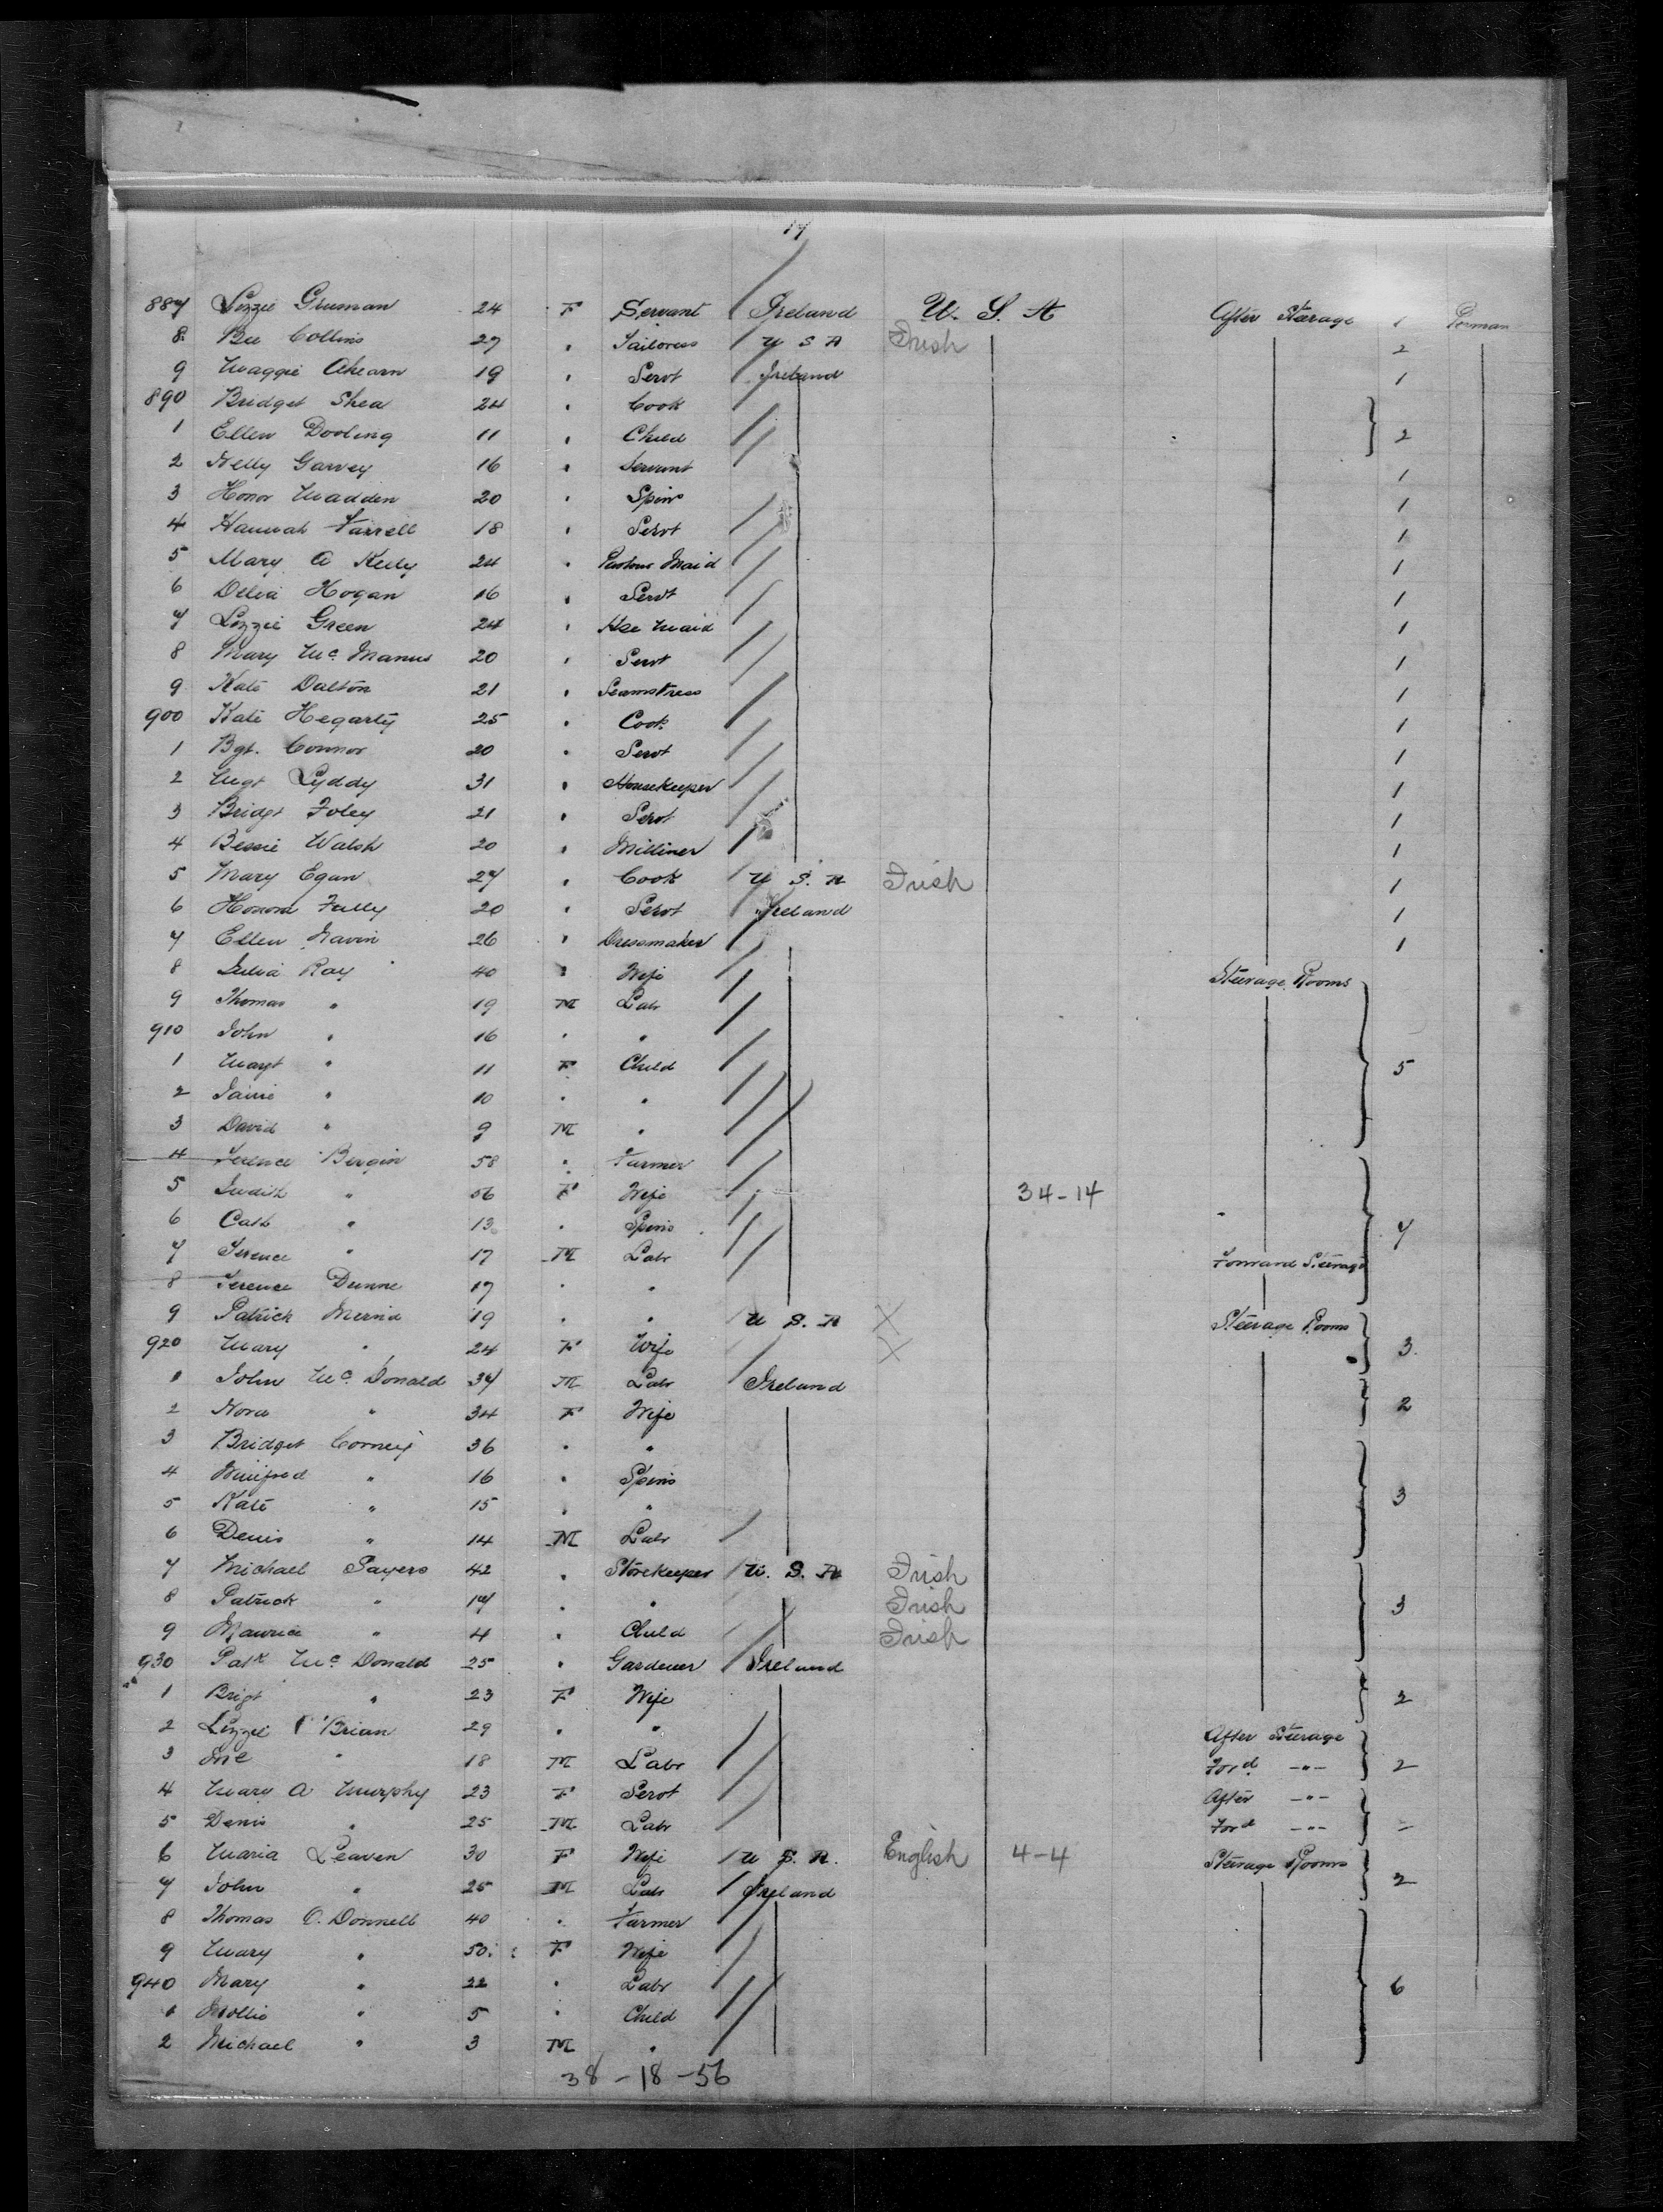 14
887 Lizzie Gruman 24 F Servant Ireland U. S. A After Steerage 1 Perman
8 Bee Collins 27 " Tailoress U S A Irish 2
9 Maggie Ahearn 19 " Servt Ireland 1
890 Bridget Shea 24 " Cook
1 Ellen Dooling 11 " Child 2
2 Nelly Garvey 16 " Servant 1
3 Honor Madden 20 " Spins 1
4 Hannah Farrell 18 " Servt 1
5 Mary A Kelly 24 " Parlour Maid 1
6 Delia Hogan 16 " Servt 1
7 Lizzie Green 24 " Hse Maid 1
8 Mary Mc Manus 20 " Servt 1
9 Kate Dalton 21 " Seamstress 1
900 Kate Hegarty 25 " Cook 1
1 Bgt. Connor 20 " Servt 1
2 Mgt Lyddy 31 " Housekeeper 1
3 Bridgt Foley 21 " Servt 1
4 Bessie Walsh 20 " Milliner 1
5 Mary Egan 27 " Cook U S. A Irish 1
6 Honora Fully 20 " Servt Ireland 1
7 Ellen Navin 26 " Dressmaker 1
8 Julia Ray 40 " Wife Steerage Rooms
9 Thomas " 19 M Labr
910 John " 16 " "
1 Margt " 11 F Child 5
2 Janie " 10 " "
3 David " 9 M "
4 Terence Bergin 58 " Farmer
5 Judith " 56 F Wife 34-14
6 Cath " 13 " Spins 7
7 Terence " 17 M Labr Forward Steerage
8 Terence Dunne 17 " "
9 Patrick 19 " " U S. A X Steerage Rooms
920 Mary " 24 F Wife X 3.
1 John Mc Donald 37 M Labr Ireland
2 Nora " 34 F Wife 2
3 Bridget 36 " "
4 Winifred " 16 " Spins
5 Kate " 15 " " 3
6 Denis " 14 M Labr
7 Michael Sayers 42 " Storekeeper U. S. A Irish
8 Patrick " 17 " " Irish 3
9 Maurice " 4 " Child Irish
930 Patk Mc Donald 25 " Gardener Ireland
1 Brigt " 23 F Wife 2
2 Lizzie O'Brian 29 " " After Steerage
3 Jno " 18 M Labr Ford -"- 2
4 Mary A Murphy 23 F Servt After -"-
5 Denis " 25 M Labr Ford -"-
6 Maria Leaven 30 F Wife U S. A. English 4-4 Steerage Rooms
7 John " 25 M Labr Ireland 2
8 Thomas O. Donnell 40 " Farmer
9 Mary " 50 F Wife
940 Mary " 22 " Labr 6
1 Mollie " 5 " Child
2 Michael " 3 M "
38-18-56